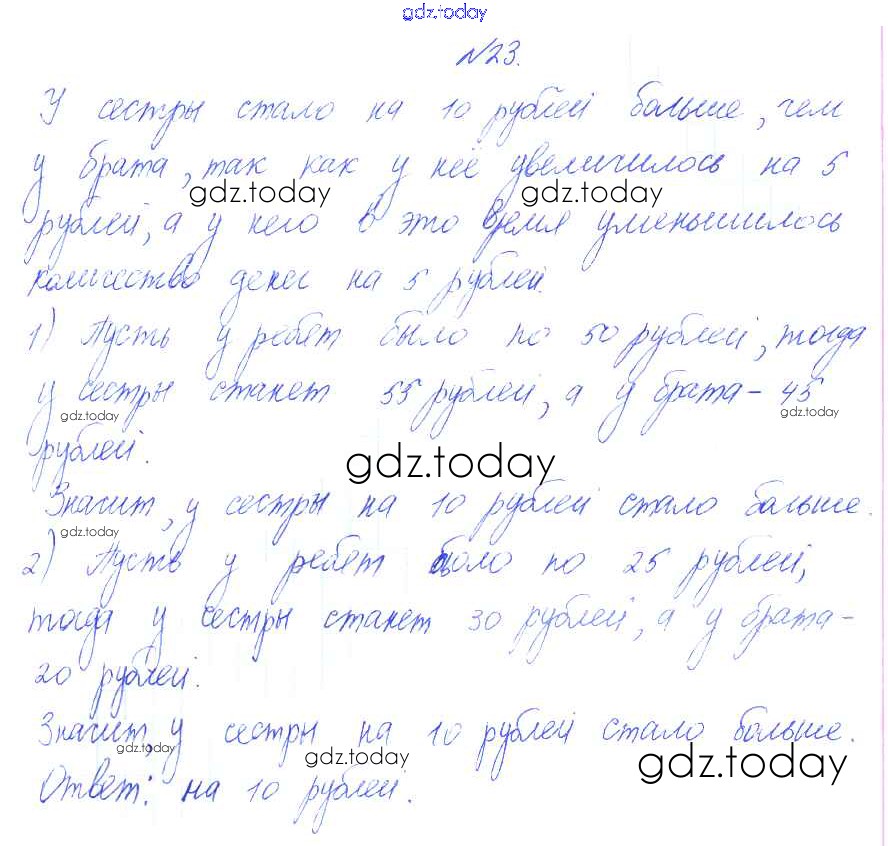 gdz.today
№23.
У сестры стало на 10 рублей больше, чем
у брата, так как у неё увеличилось на 5
gdz.today gdz.today
рублей, а у него в это время уменьшилось
количество денег на 5 рублей.
1) Пусть у ребят было по 50 рублей, тогда
у сестры станет 55 рублей, а у брата - 45
gdz.today gdz.today
рублей.
gdz.today
Значит, у сестры на 10 рублей стало больше.
gdz.today
2) Пусть у ребят было по 25 рублей,
тогда у сестры станет 30 рублей, а у брата -
20 рублей.
Значит, у сестры на 10 рублей стало больше.
gdz.today gdz.today gdz.today
Ответ: на 10 рублей.